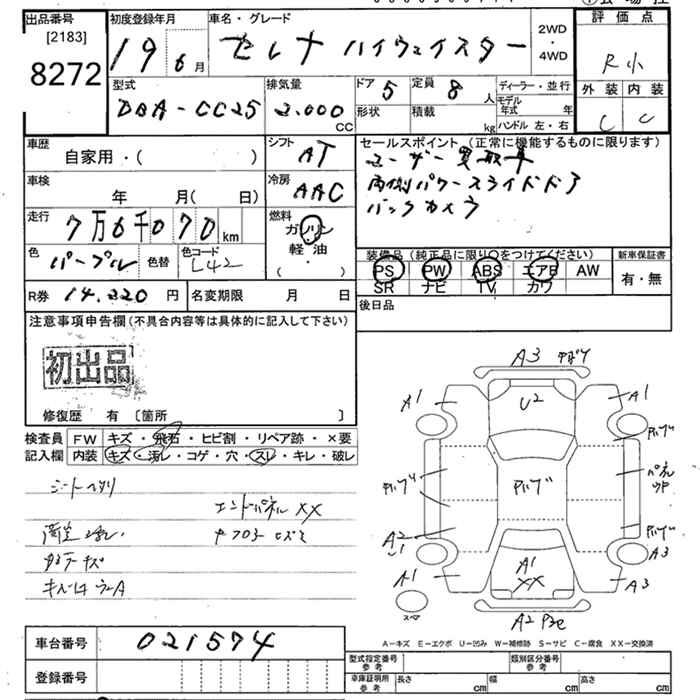 出品番号
[2183]
8272
初度登録年月
19 6月
車名・グレード
セレナ ハイウェイスター
2WD・4WD
評価点
R
外装 内装
C C
型式
DBA-CC25
排気量
2.000 CC
ドア 5
形状
定員 8人
積載 kg
ディーラー・並行
モデル年式 年
ハンドル 左・右
車歴
自家用・( )
シフト
AT
セールスポイント (正常に機能するものに限ります)
ユーザー買取車
両側パワースライドドア
バックカメラ
車検
年 月( 日)
冷房
AAC
走行
7万6千070 km
燃料
ガソリン
軽・油
( ・ )
色
パープル
色替
色コード
L42
装備品 (純正品に限り○をつけてください)
PS PW ABS エアB AW
SR ナビ TV カワ
新車保証書
有・無
R券 14.220 円
名変期限 月 日
後日品
注意事項申告欄(不具合内容等は具体的に記入して下さい)
初出品
修復歴 有 〔箇所 〕
検査員記入欄
FW キズ・飛石・ヒビ割・リペア跡・×要
内装 キズ・汚レ・コゲ・穴・スレ・キレ・破レ
エンドパネル XX
A3
A1
U2
A1
A2
A1
XX
A1
A3
A3
A2
スペア
A-キズ E-エクボ U-凹み W-補修跡 S-サビ C-腐食 XX-交換済
車台番号 021574
登録番号
型式指定番号 参考
類別区分番号 参考
車庫証明用 参考
長さ cm
幅 cm
高さ cm